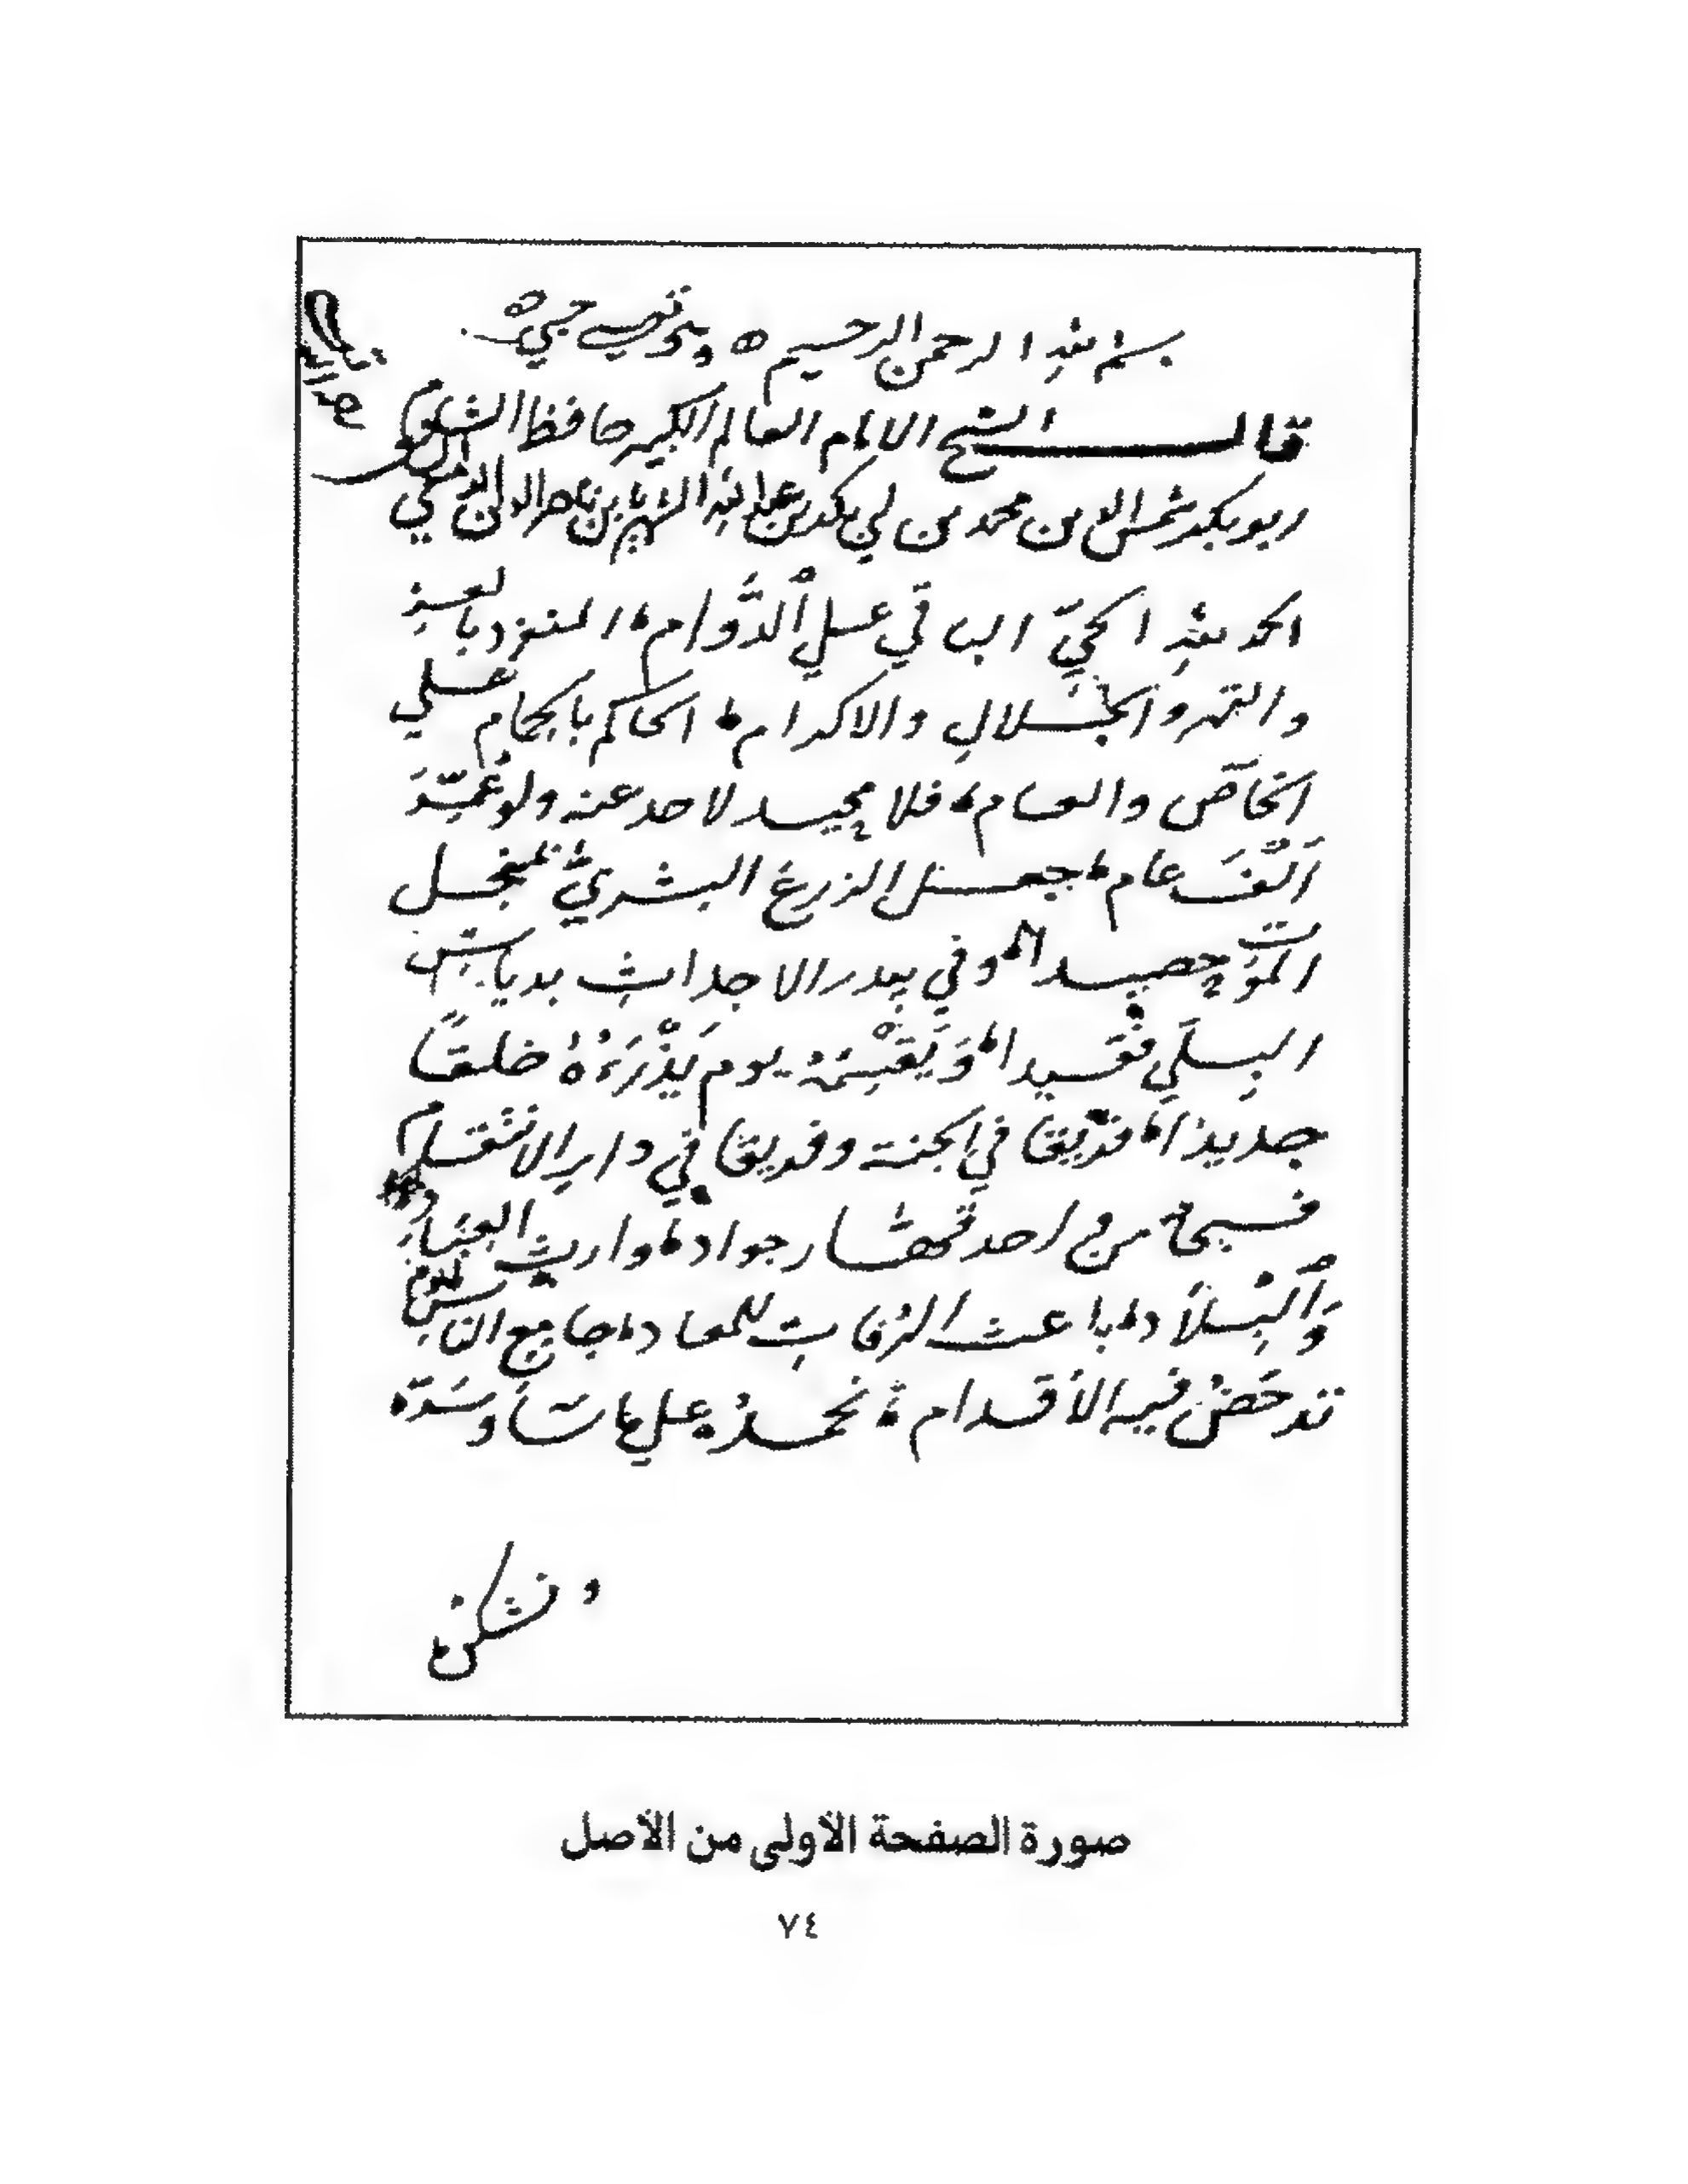 بسم الله الرحمن الرحيم ه وبه توفيقي حسبي ه
قال الشيخ الامام العالم الكبير حافظ الشام
ابو بكر شمس الدين محمد بن ابي بكر بن عبد الله الشهير بابن ناصر الدين الدمشقي
الحمد لله الحيّ الباقي علي اْلدَّوام، المنفرد بالعز
والقهر والجلالِ والاكرام، الحاكم بالحمام علي
الخاصّ والعام، فلا محيد لاحد عنه ولو عُمِّرَ
اَلْفَ عام، جعل الزرعَ البشريَّ بمنجل
الموت حصيدا، وفي بيدر الاجداثِ بدياسِ
البِلَي فقيدا، وَيَقسِمُه يوم يَذْرَءُهُ خلقًا
جديدا، فريقا في الجنة وفريقا في دار الانتقام
فسبحانه من احد قهار جواد، وارث العِبَادِ
وَاْلبِلاَد، باعث الرُفاتِ للمعاد، جامع الناسِ ليوم
تدحَضُ فيه الأقدام، نحمدُه علي ما شاَ وسَرّه
ونشكره
صورة الصفحة الأولى من الأصل
٧٤